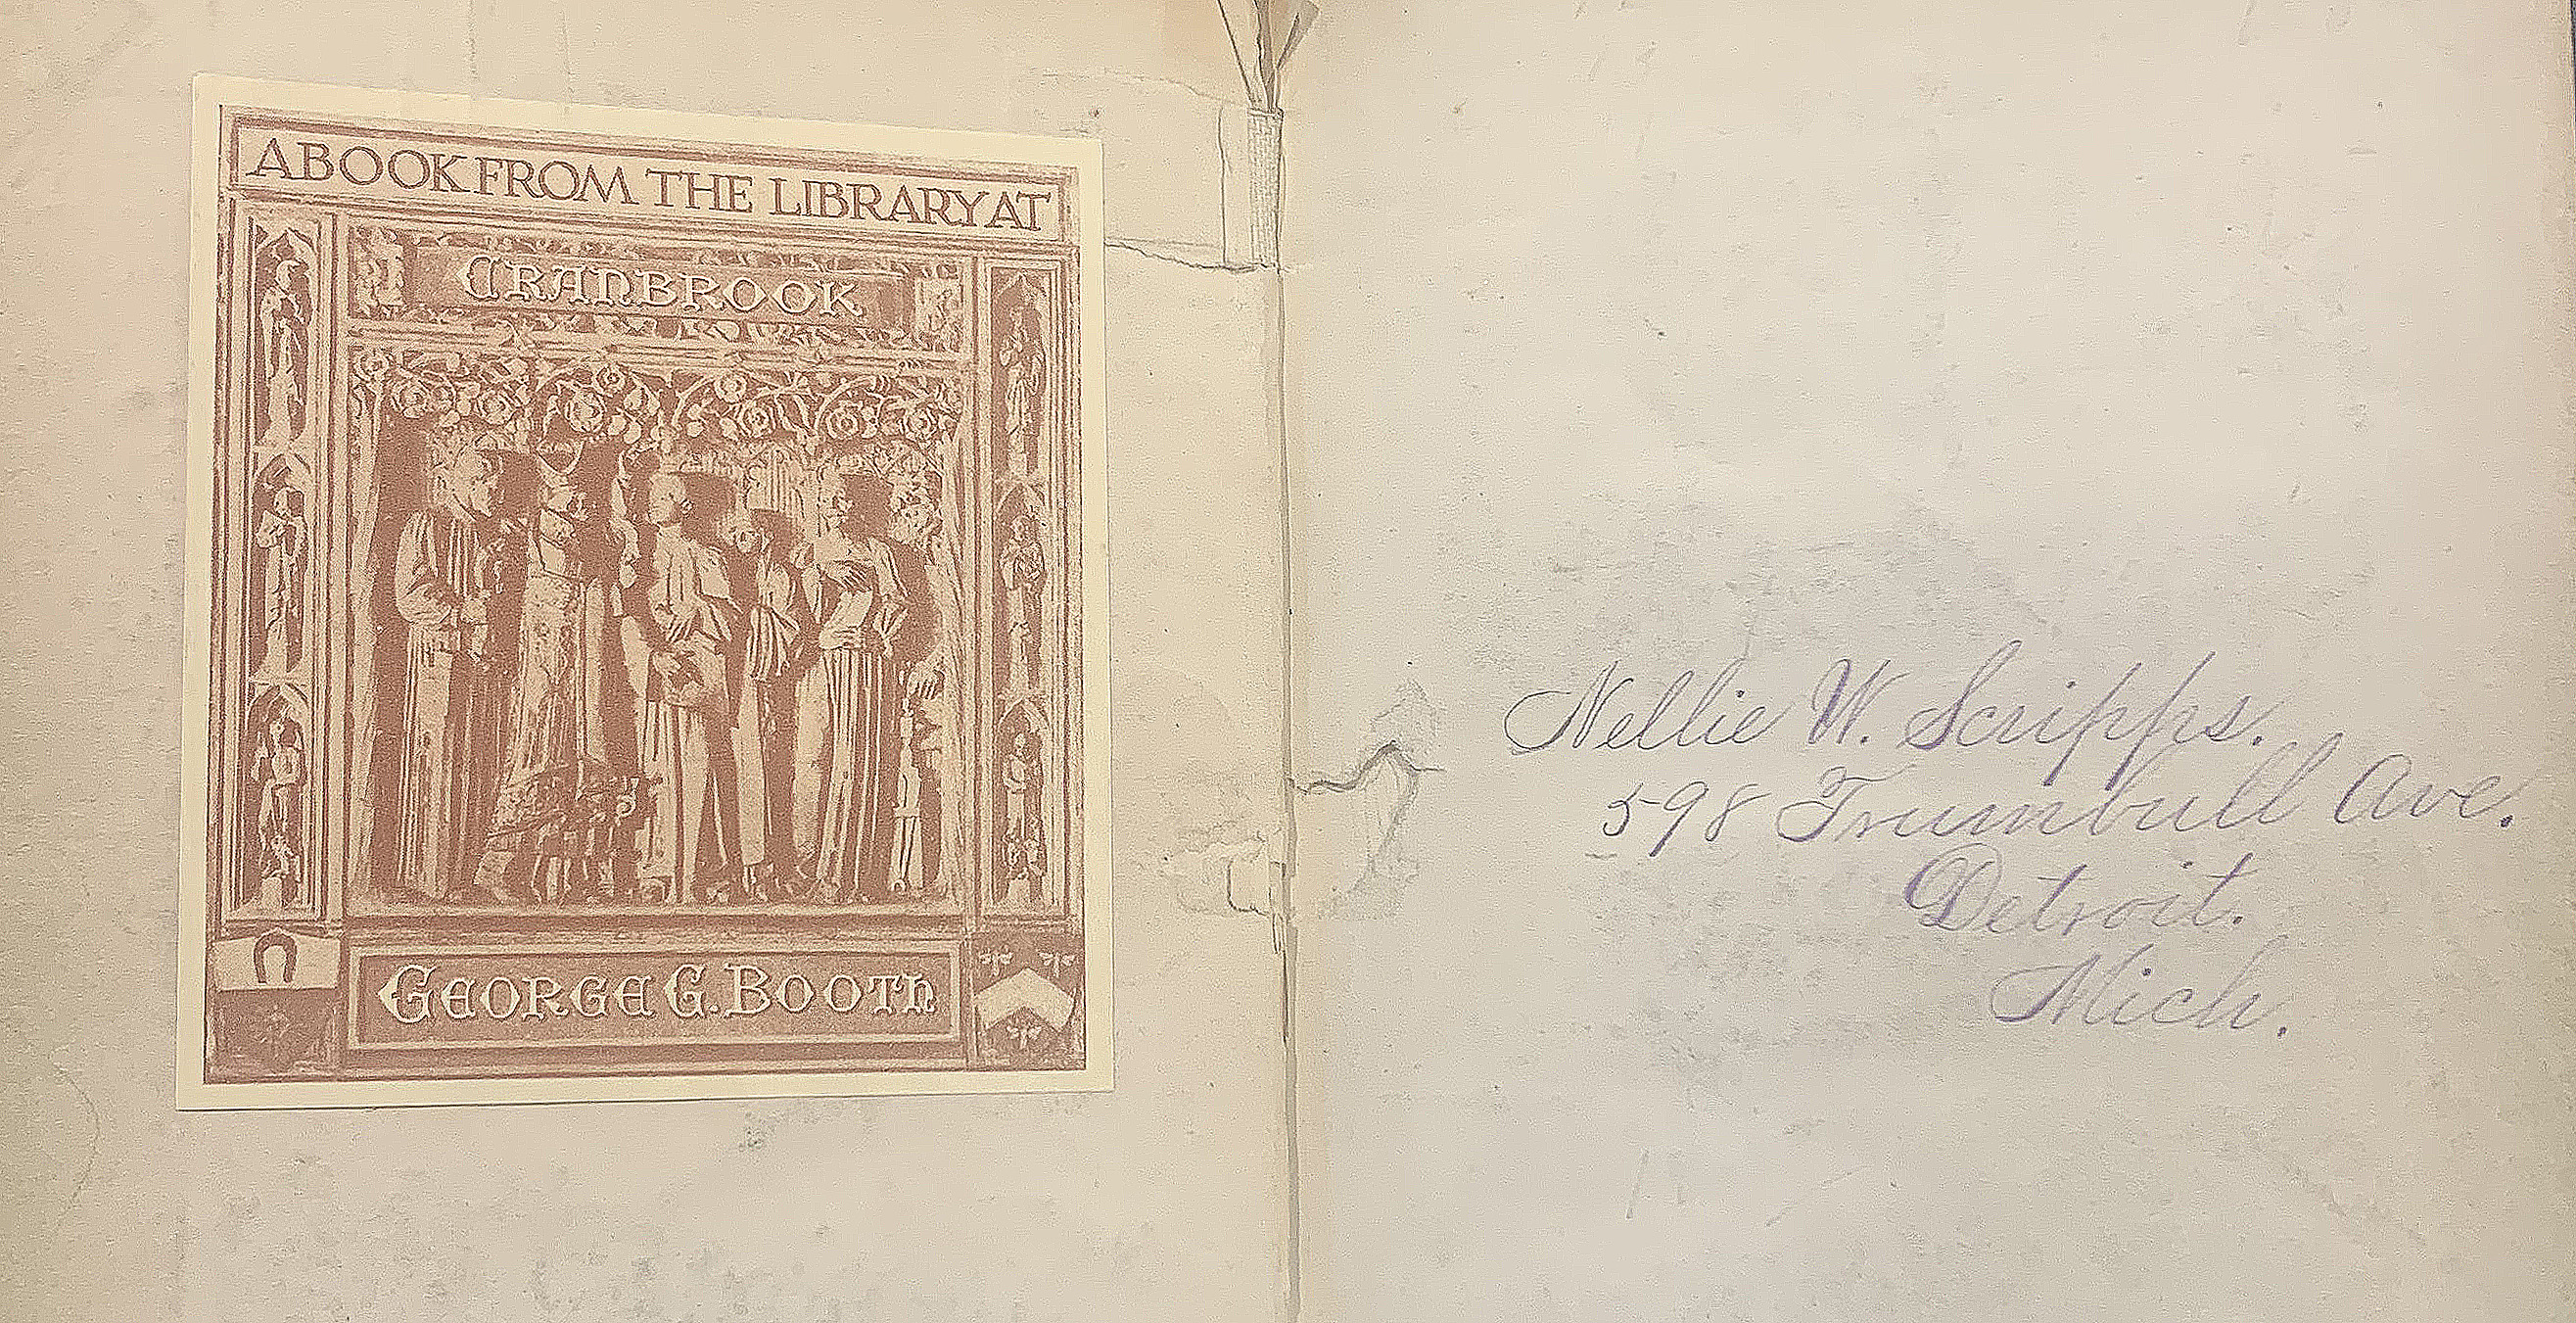 A BOOK FROM THE LIBRARY AT
CRANBROOK
GEORGE G. BOOTH
Nellie W. Scripps.
598 Trumbull Ave.
Detroit.
Mich.